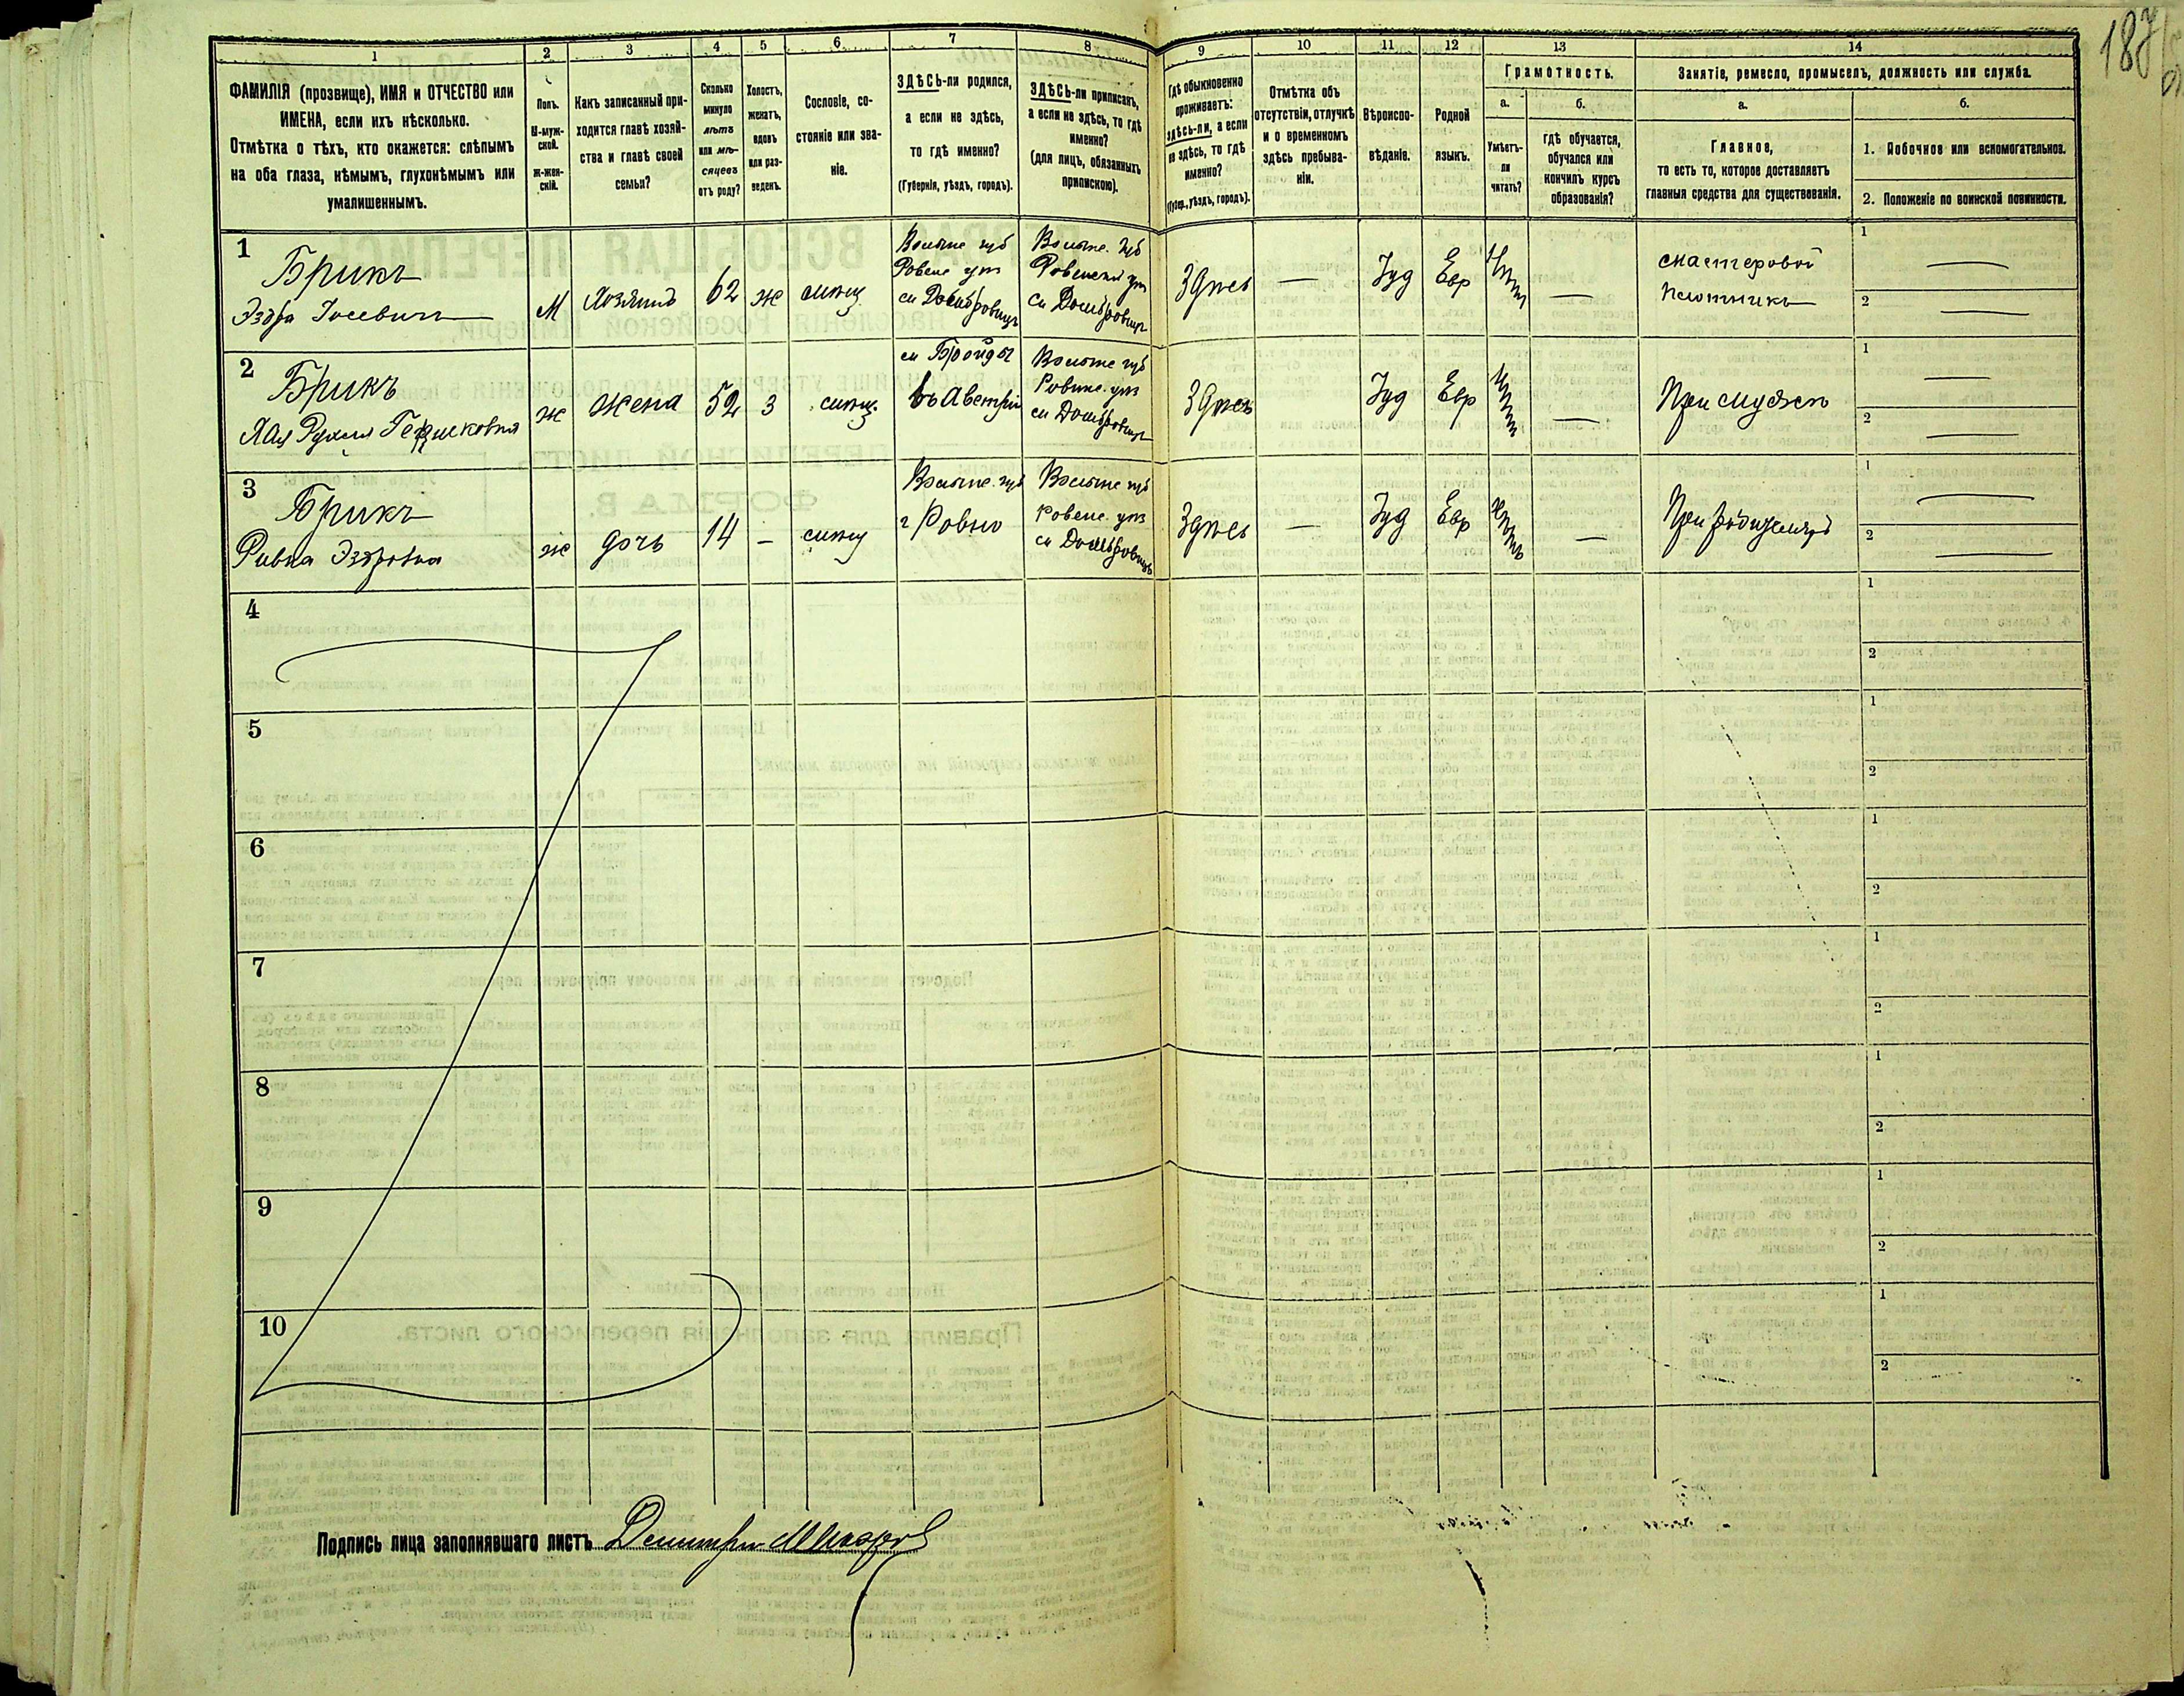 187
1 2 3 4 5 6 7 8 9 10 11 12 13 14
ФАМИЛІЯ (прозвище), ИМЯ и ОТЧЕСТВО или
ИМЕНА, если ихъ нѣсколько.
Отмѣтка о тѣхъ, кто окажется: слѣпымъ
на оба глаза, нѣмымъ, глухонѣмымъ или
умалишеннымъ.
Полъ.
М-муж-
ской.
Ж-жен-
скій.
Какъ записанный при-
ходится главѣ хозяй-
ства и главѣ своей
семьи?
Сколько
минуло
лѣтъ
или мѣ-
сяцевъ
отъ роду?
Холостъ,
женатъ,
вдовъ
или раз-
веденъ.
Сословіе, со-
стояніе или зва-
ніе.
ЗДѢСЬ-ли родился,
а если не здѣсь,
то гдѣ именно?
(Губернія, уѣздъ, городъ).
ЗДѢСЬ-ли приписанъ,
а если не здѣсь, то гдѣ
именно?
(для лицъ, обязанныхъ
припискою).
Гдѣ обыкновенно
проживаетъ:
здѣсь-ли, а если
не здѣсь, то гдѣ
именно?
(Губер., уѣздъ, городъ).
Отмѣтка объ
отсутствіи, отлучкѣ
и о временномъ
здѣсь пребыва-
ніи.
Вѣроиспо-
вѣданіе.
Родной
языкъ.
Грамотность.
а.
Умѣетъ-
ли
читать?
б.
гдѣ обучается,
обучался или
кончилъ курсъ
образованія?
Занятіе, ремесло, промыселъ, должность или служба.
а.
Главное,
то есть то, которое доставляетъ
главныя средства для существованія.
б.
1. Побочное или вспомогательное.
2. Положеніе по воинской повинности.
1
Брикъ
Эздра Іосевичъ
М
Хозяинъ
62
ж
Волынс губ
Ровенс у
м Домбровицъ
Волынс. губ
Ровенскій у
м Домбровицъ
Здѣсь
—
Іуд
Евр
—
мастеровой
Плотникъ
1 —
2 —
2
Брикъ
ж
жена
52
З
м Броды
въ Австріи
Волынс губ
Ровенс. у
м Домбровицъ
Здѣсь
Іуд
Евр
—
При мужѣ
1 —
2 —
3
Брикъ
Ривка Эздровна
ж
дочь
14
—
Волынс. губ
г Ровно
Волынс губ
Ровенс. у
м Домбровицъ
Здѣсь
—
Іуд
Евр
—
При родителяхъ
1 —
2 —
4
1
2
5
1
2
6
1
2
7
1
2
8
1
2
9
1
2
10
1
2
Подпись лица заполнявшаго листъ